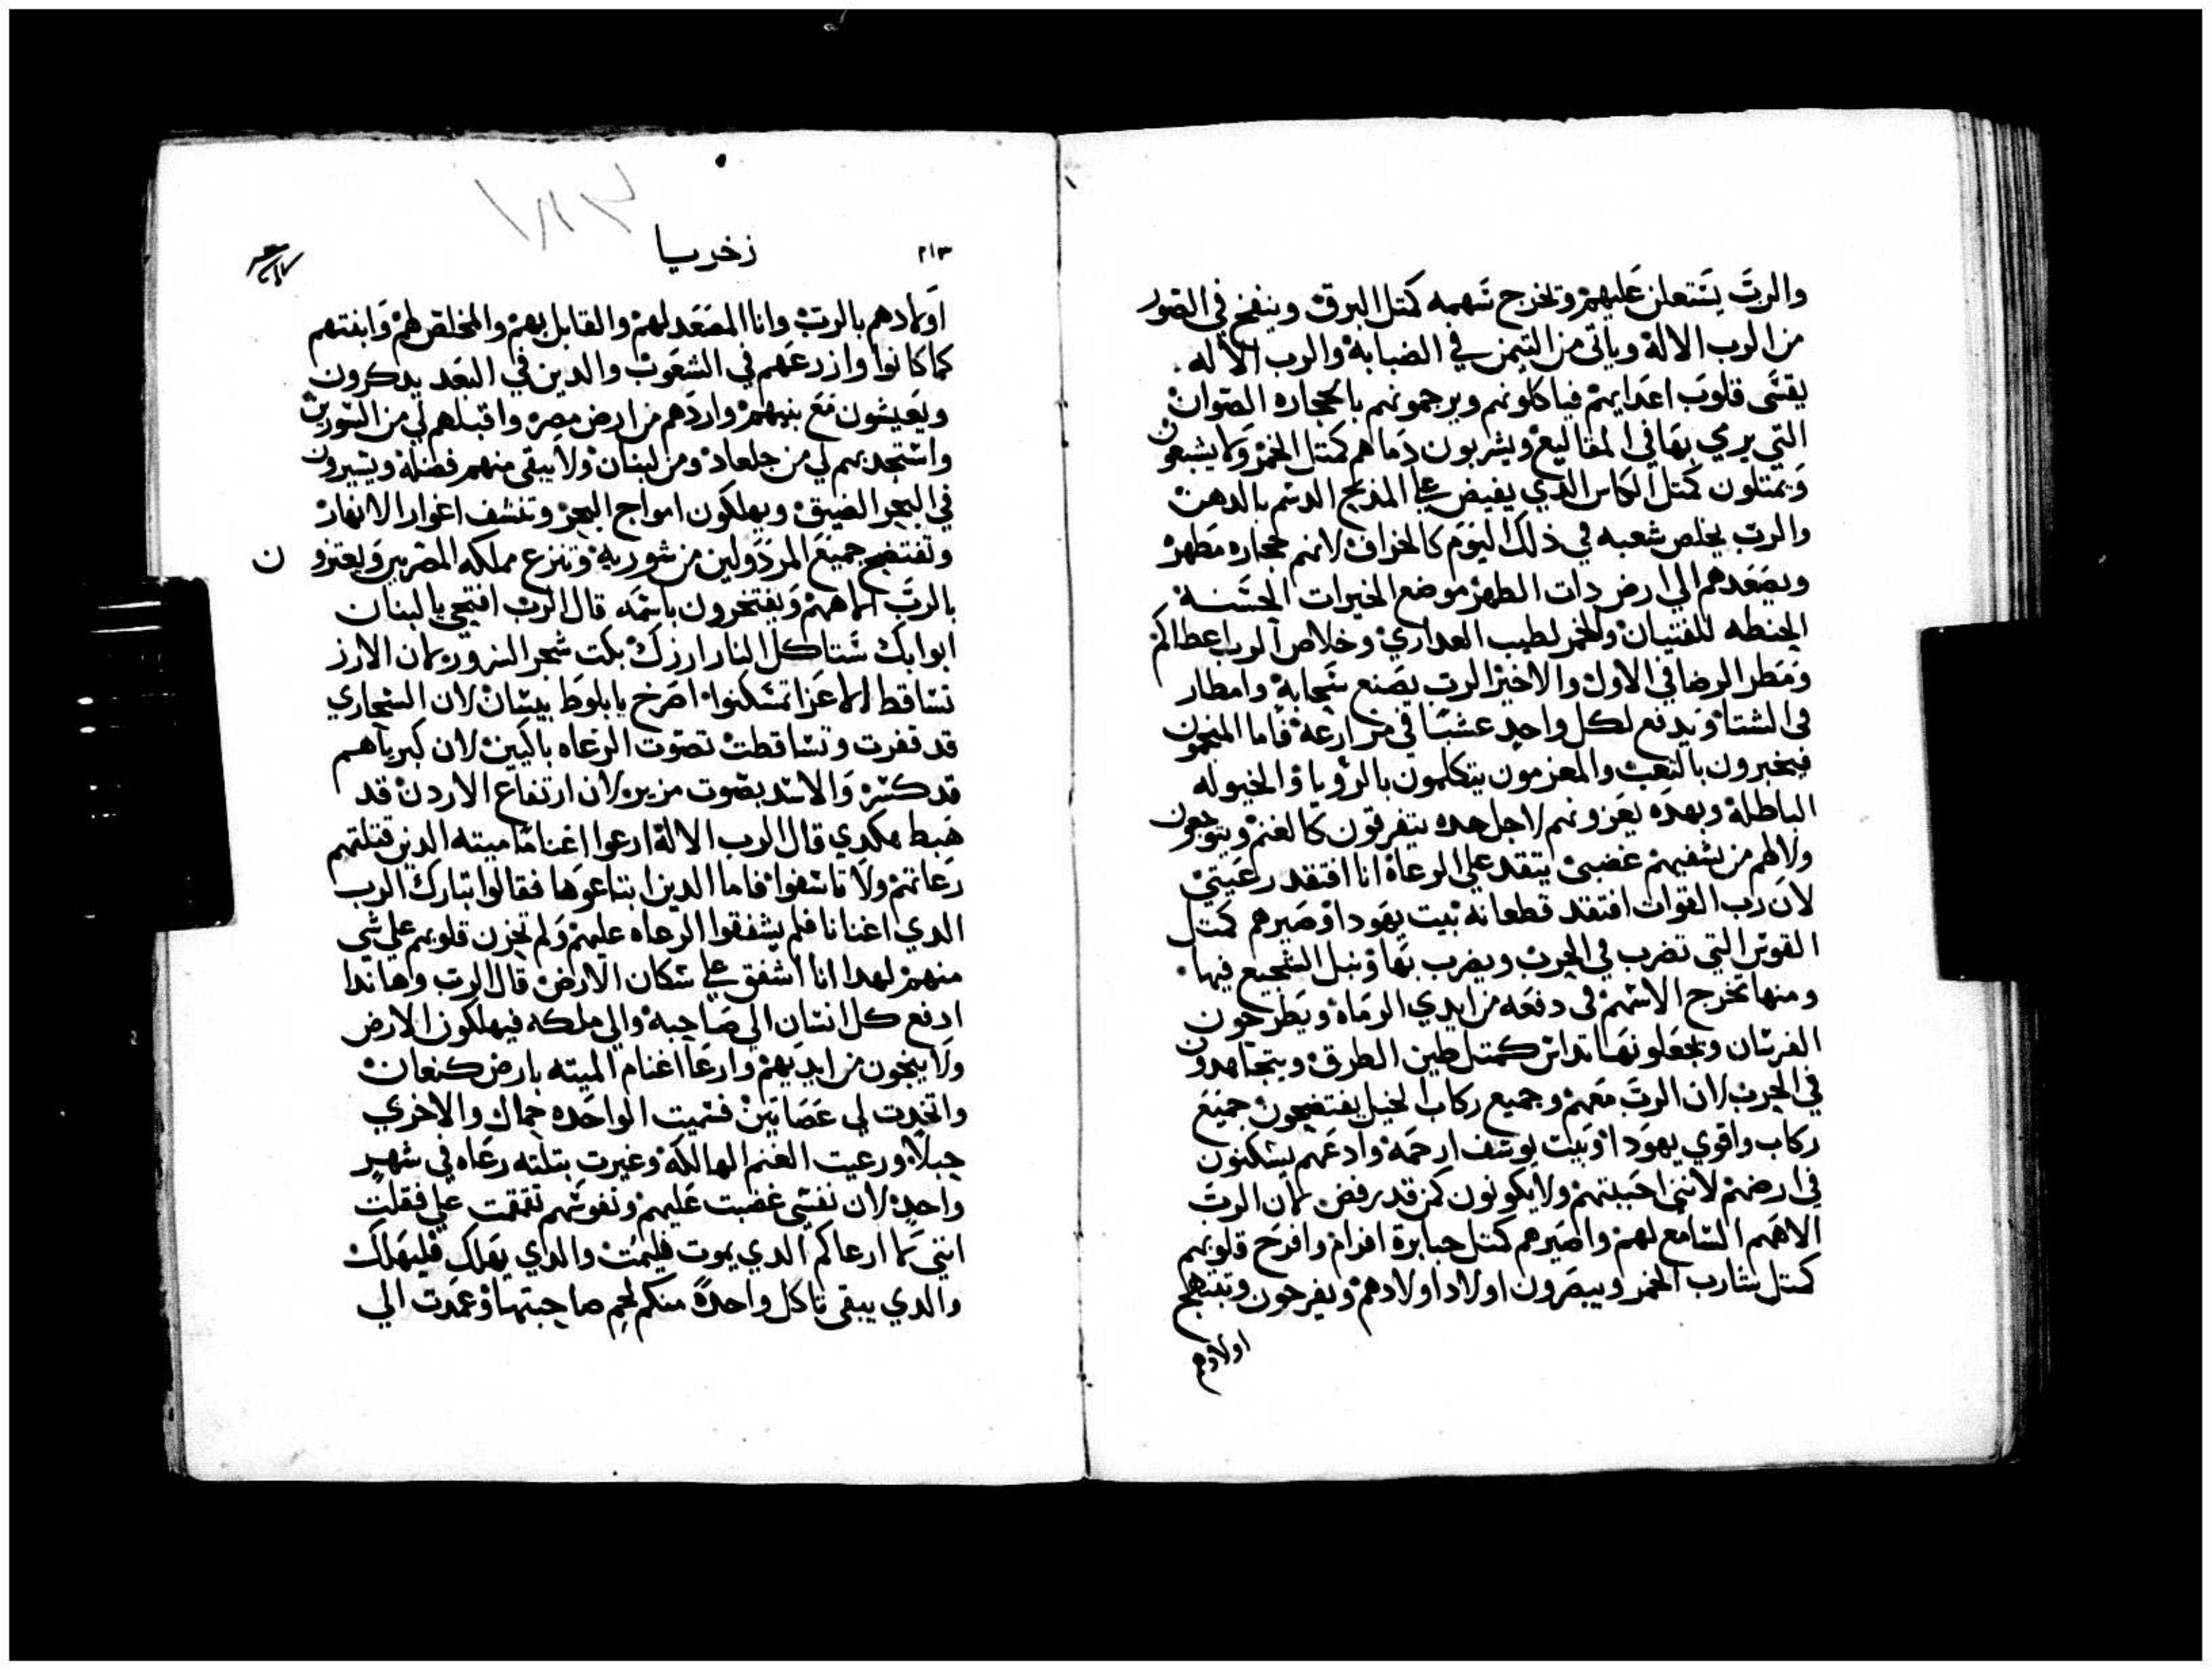 والرب يستعلن عليهم وتخرج سهمه كمتل البرق وينفخ في الصور
من الرب الاله وياتي من التيمن في الضبابه والرب الاله
يقسي قلوب اعدايهم فياكلونهم ويرجمونهم بالحجاره الصوان
التي يرمي بها في المقاليع ويشربون دماهم كمتل الخمر ولا يشبعون
ويمتلون كمتل الكاس الدي يفيض علي المدبح الدسم بالدهن
والرب يخلص شعبه في ذلك اليوم كالخراف لانهم حجاره مطهره
ويصعدهم الي ارض دات الطهر موضع الخيرات الحسنه
الحنطه للفتيان والخمر لطيب العداري وخلاص الرب اعطاكم
ومطر الرضا في الاول والاخير الرب يصنع سحابه وامطار
في الشتا ويدفع لكل واحد عشبا في مزارعه فاما المنجمون
فيخبرون بالتعب والمعزمون يتكلمون بالرويا والخيوله
الباطله وبهده يعزونهم لاجل هده يتفرقون كالغنم ويتوجعون
ولا لهم من يشفيهم غضبي يتقد علي الرعاه انا افتقد رعيتي
لان رب القوات افتقد قطعانه بيت يهودا وصيرهم كمتل
القوس التي تضرب في الحرب ويضرب بها ونبل الشجيع فيها
ومنها تخرج الاسهم في دفعه من ايدي الرماه ويطرحون
الفرسان ويجعلونها تداس كمتل طين الطرق ويتجاهدون
في الحرب لان الرب معهم وجميع ركاب الخيل يفتضحون جميع
ركاب واقوي يهودا وبيت يوسف ارحمه وادعهم يسكنون
في ارضهم لانني احببتهم ولا يكونون كمن قد رفض لان الرب
الاههم السامع لهم واصيرهم كمتل جبابرة افرام وافرح قلوبهم
كمتل شارب الخمر ويبصرون اولاد اولادهم ويفرحون وتبتهج
اولادهم
٢١٣
زخريا
اولادهم بالرب وانا المصعد لهم والقابل بهم والمخلص لهم وابنتهم
كما كانوا وازرعهم في الشعوب والدين في البعد يدكرون
ويعيشون مع بنيهم واردهم من ارض مصر واقبلهم لي من السوريين
واستجدبهم لي من جلعاد ومن لبنان ولا يبقي منهم فضله ويسيرون
في البحر الضيق ويهلكون امواج البحر وتنشف اغوار الانهار
وتفتضح جميع المردولين من شوريه وتنزع مملكه المصريين ويعتزون
بالرب الاههم ويفتخرون باسمه قال الرب افتحي يا لبنان
ابوابك ستاكل النار ارزك بكت شجر السرور لان الارز
تساقط الاعزا تمسكنوا اصرخ يا بلوط بيسان لان الشجاري
قد قفرت وتساقطت تصوت الرعاه باكيين لان كبرياهم
قد كسر والاسد بصوت مزيره لان ارتفاع الاردن قد
هبط هكدي قال الرب الاله ارعوا اغناما ميته الدين قتلتهم
رعاتهم ولا تاسفوا فاما الدين ابتاعوها فقالوا تبارك الرب
الدي اغنانا فلم يشفقوا الرعاه عليهم ولم تحزن قلوبهم علي شي
منهم لهدا انا اشفق علي سكان الارض قال الرب وهاندا
ادفع كل انسان الي صاحبه والي ملكه فيهلكون الارض
ولا ينجون من ايديهم وارعا اغنام الميته بارض كنعان
واتخدت لي عصاتين فسميت الواحده جمال والاخري
حبلا ورعيت الغنم الهالكه وغيرت بتلته رعاه في شهر
واحد لان نفسي غضبت عليهم ونفوسهم تقمقمت علي فقلت
انني لا ارعاكم الدي يموت فليمت والدي يهلك فليهلك
والدي يبقي تاكل واحدة منكم لحم صاحبتها وعمدت الي